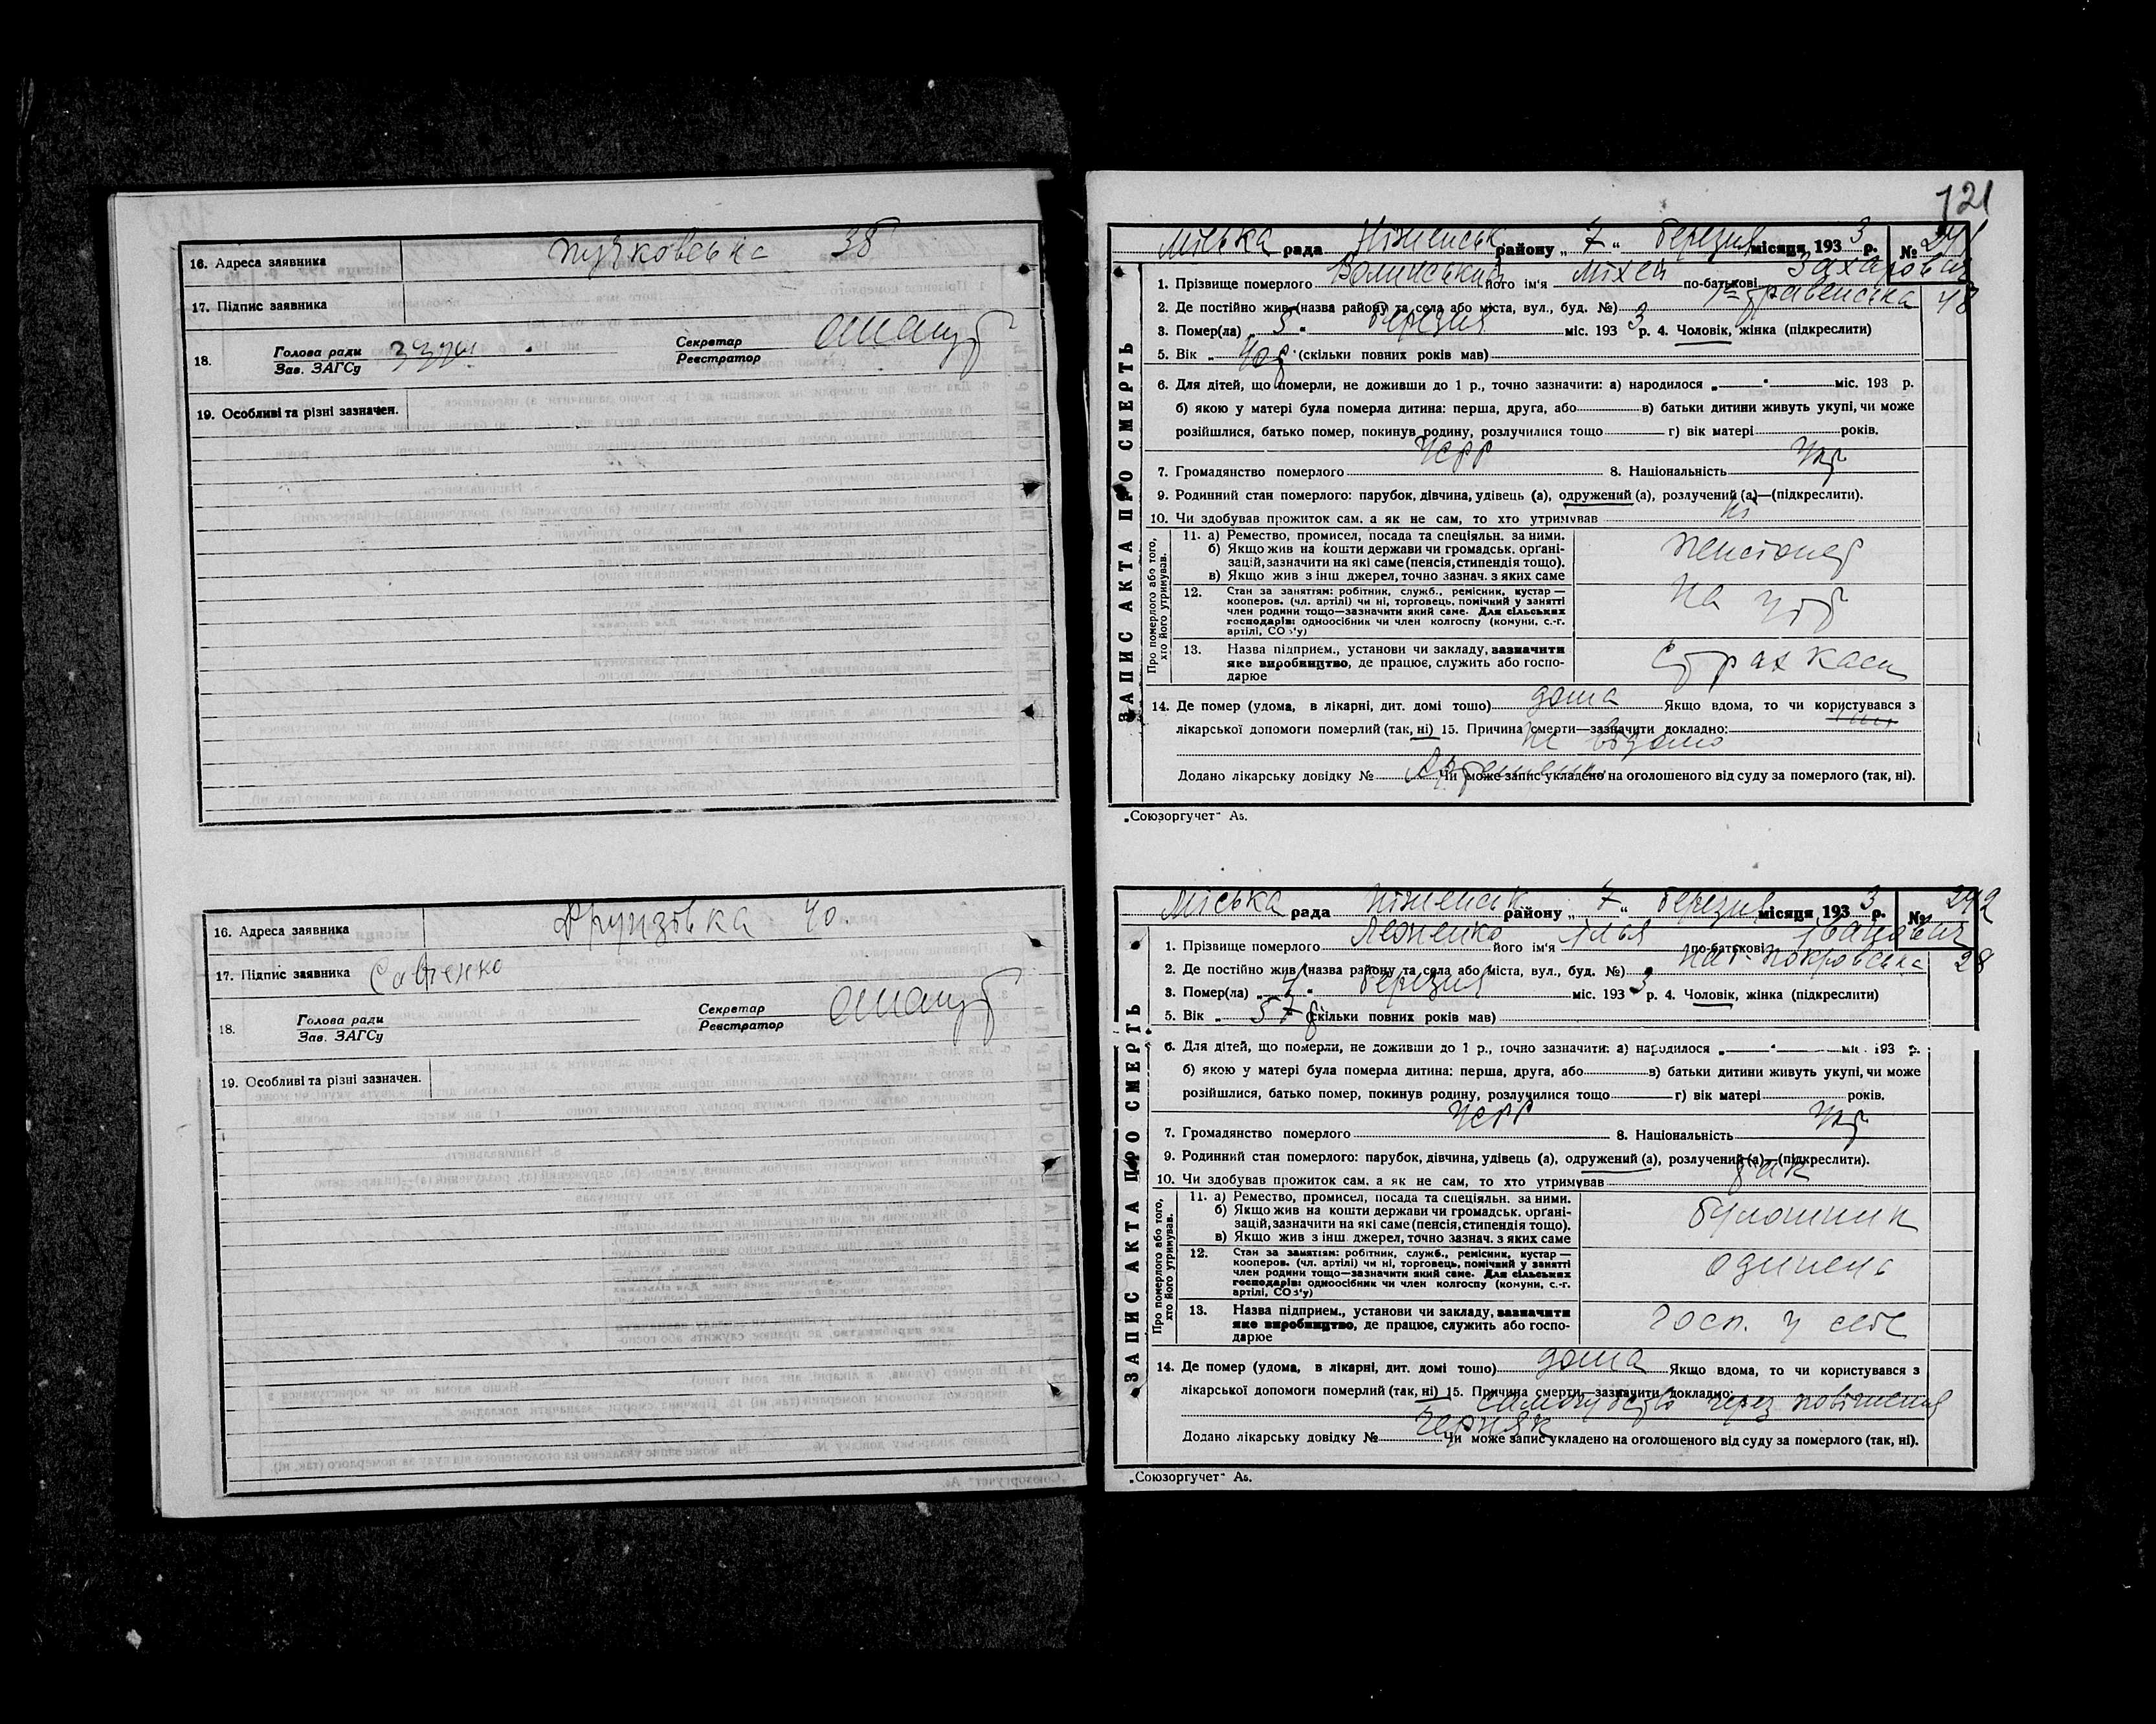 16. Адреса заявника
38
17. Підпис заявника
18. Голова ради
Зав. ЗАГСу
Секретар
Реєстратор
19. Особливі та різні зазначен.
16. Адреса заявника Фрунзівка 40.
17. Підпис заявника Савченко
18. Голова ради
Зав. ЗАГСу
Секретар
Реєстратор
19. Особливі та різні зазначен.
121
ЗАПИС АКТА ПРО СМЕРТЬ
Міська рада Ніженськ району „ 7 “ березня місяця 193 3 р. № 241
1. Прізвище померлого Волинський його ім'я Міхей по-батькові Захарович
2. Де постійно жив (назва району та села або міста, вул., буд. №) 48
3. Помер(ла) „ 5 “ березня міс. 193 3 р. 4. Чоловік, жінка (підкреслити)
5. Вік „ (скільки повних років мав)
6. Для дітей, що померли, не доживши до 1 р., точно зазначити: а) народилося „ “ міс. 193 р.
б) якою у матері була померла дитина: перша, друга, або в) батьки дитини живуть укупі, чи може
розійшлися, батько помер, покинув родину, розлучилися тощо г) вік матері років.
7. Громадянство померлого УСРР 8. Національність Укр
9. Родинний стан померлого: парубок, дівчина, удівець (а), одружений (а), розлучений (а)—(підкреслити).
10. Чи здобував прожиток сам, а як не сам, то хто утримував ні
Про померлого або того, хто його утримував.
11. а) Ремество, промисел, посада та спеціяльн. за ними.
б) Якщо жив на кошти держави чи громадськ. органі-
зацій, зазначити на які саме (пенсія, стипендія тощо).
в) Якщо жив з інш джерел, точно зазнач. з яких саме
пенсіонер
12. Стан за заняттям: робітник, служб., ремісник, кустар—
кооперов. (чл. артілі) чи ні, торговець, помічний у занятті
член родини тощо—зазначити який саме. Для сільських
господарів: одноосібник чи член колгоспу (комуни, с.-г.
артілі, СОЗ'у)
на утр
13. Назва підприєм., установи чи закладу, зазначити
яке виробництво, де працює, служить або госпо-
дарює
Страх каси
14. Де помер (удома, в лікарні, дит. домі тощо) дома Якщо вдома, то чи користувався з
лікарської допомоги померлий (так, ні) 15. Причина смерти—зазначити докладно:
не відомо
Додано лікарську довідку № Чи може запис укладено на оголошеного від суду за померлого (так, ні).
„Союзоргучет“ А₅.
ЗАПИС АКТА ПРО СМЕРТЬ
Міська рада Ніженськ району „ 7 “ березня місяця 193 3 р. № 242
1. Прізвище померлого Леоненко його ім'я Ілья по-батькові Іванович
2. Де постійно жив (назва району та села або міста, вул., буд. №) Покровська 28
3. Помер(ла) „ 4 “ березня міс. 193 3 р. 4. Чоловік, жінка (підкреслити)
5. Вік „ 57 р (скільки повних років мав)
6. Для дітей, що померли, не доживши до 1 р., точно зазначити: а) народилося „ “ міс. 193 р.
б) якою у матері була померла дитина: перша, друга, або в) батьки дитини живуть укупі, чи може
розійшлися, батько помер, покинув родину, розлучилися тощо г) вік матері років.
7. Громадянство померлого УСРР 8. Національність Укр
9. Родинний стан померлого: парубок, дівчина, удівець (а), одружений (а), розлучений (а)—(підкреслити).
10. Чи здобував прожиток сам, а як не сам, то хто утримував так
Про померлого або того, хто його утримував.
11. а) Ремество, промисел, посада та спеціяльн. за ними.
б) Якщо жив на кошти держави чи громадськ. органі-
зацій, зазначити на які саме (пенсія, стипендія тощо).
в) Якщо жив з інш джерел, точно зазнач. з яких саме
булошник
12. Стан за заняттям: робітник, служб., ремісник, кустар—
кооперов. (чл. артілі) чи ні, торговець, помічний у занятті
член родини тощо—зазначити який саме. Для сільських
господарів: одноосібник чи член колгоспу (комуни, с.-г.
артілі, СОЗ'у)
13. Назва підприєм., установи чи закладу, зазначити
яке виробництво, де працює, служить або госпо-
дарює
госп. у себе
14. Де помер (удома, в лікарні, дит. домі тощо) дома Якщо вдома, то чи користувався з
лікарської допомоги померлий (так, ні) 15. Причина смерти—зазначити докладно:
самогубство через повішення
Черняк
Додано лікарську довідку № Чи може запис укладено на оголошеного від суду за померлого (так, ні).
„Союзоргучет“ А₅.